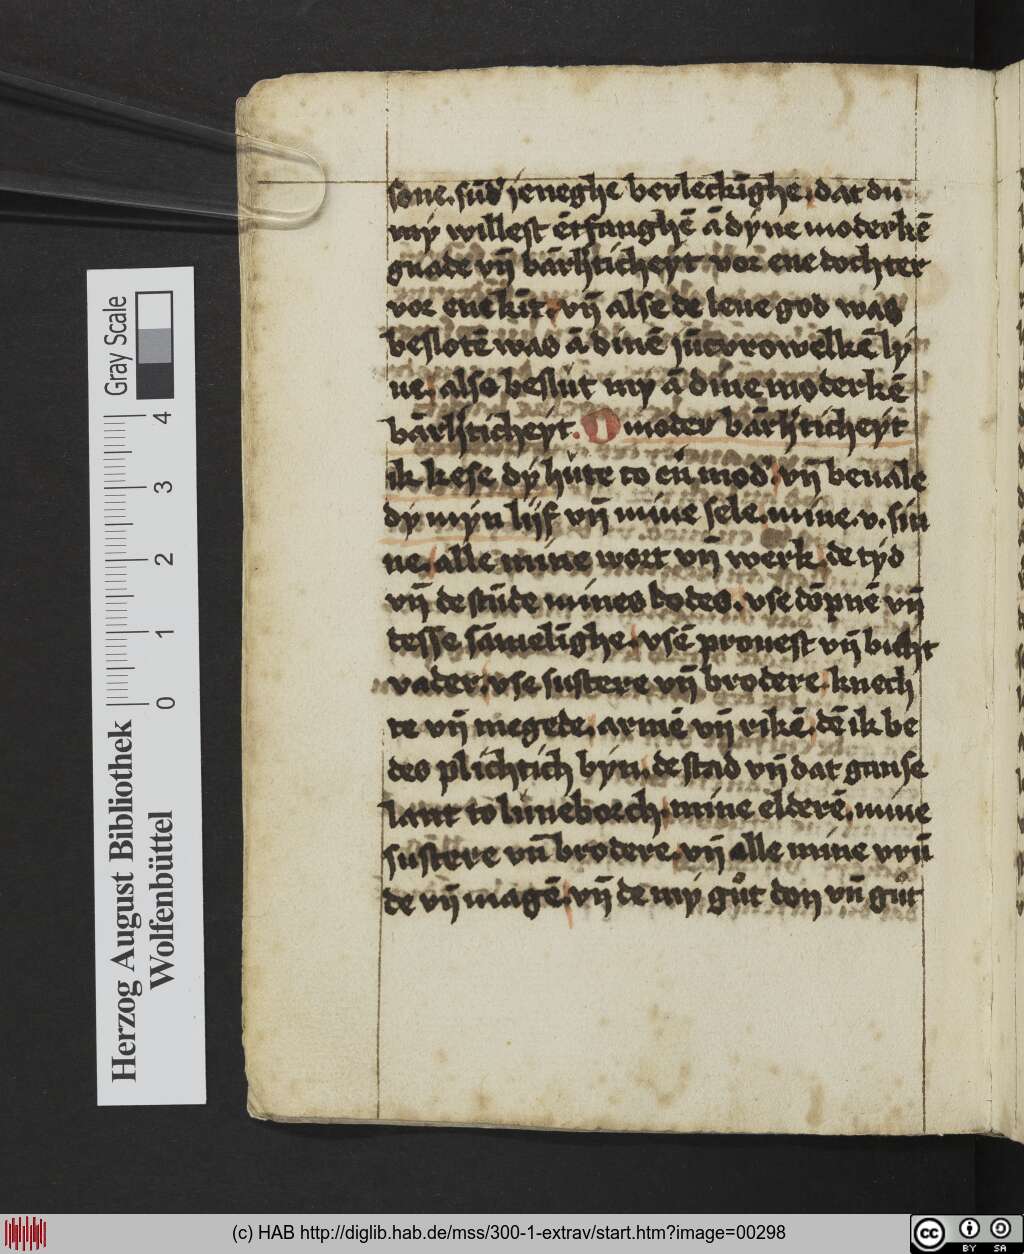 sone. sūd' jeneghe bevleckīghe. dat du
my willest ētfanghē ā dyne moderkē
gnade vn̄ bārhticheyt vor ene dochter
vor enē kīt. vn̄ alse de leue god was
beslotē was ā dinē jūcvrowelkē ly
ue. also beslut my ā dine moderkē
bārhticheyt. O moder bārhticheyt
ik kese dy hute to en̄ mod'. vn̄ beuale
dy myn lijf vn̄ mine sele. mine. v. sin
ne. alle mine wort vn̄ werk. de tyd
vn̄ de stūde mines dodes. vse dōpnē vn̄
tesse sāmelīghe. vsē prouest vn̄ bicht
vader. vse sustere vn̄ brodere. knech
te vn̄ megede. armē vn̄ rikē. dē ik be
des plichtich byn. de stad vn̄ dat ganse
lant to luneborch. mine elderē. mine
sustere vn̄ brodere. vn̄ alle mine vrū
de vn̄ magē. vn̄ de my gůt don vn̄ gůt
Gray Scale
0 1 2 3 4
Herzog August Bibliothek
Wolfenbüttel
(c) HAB http://diglib.hab.de/mss/300-1-extrav/start.htm?image=00298
cc BY SA